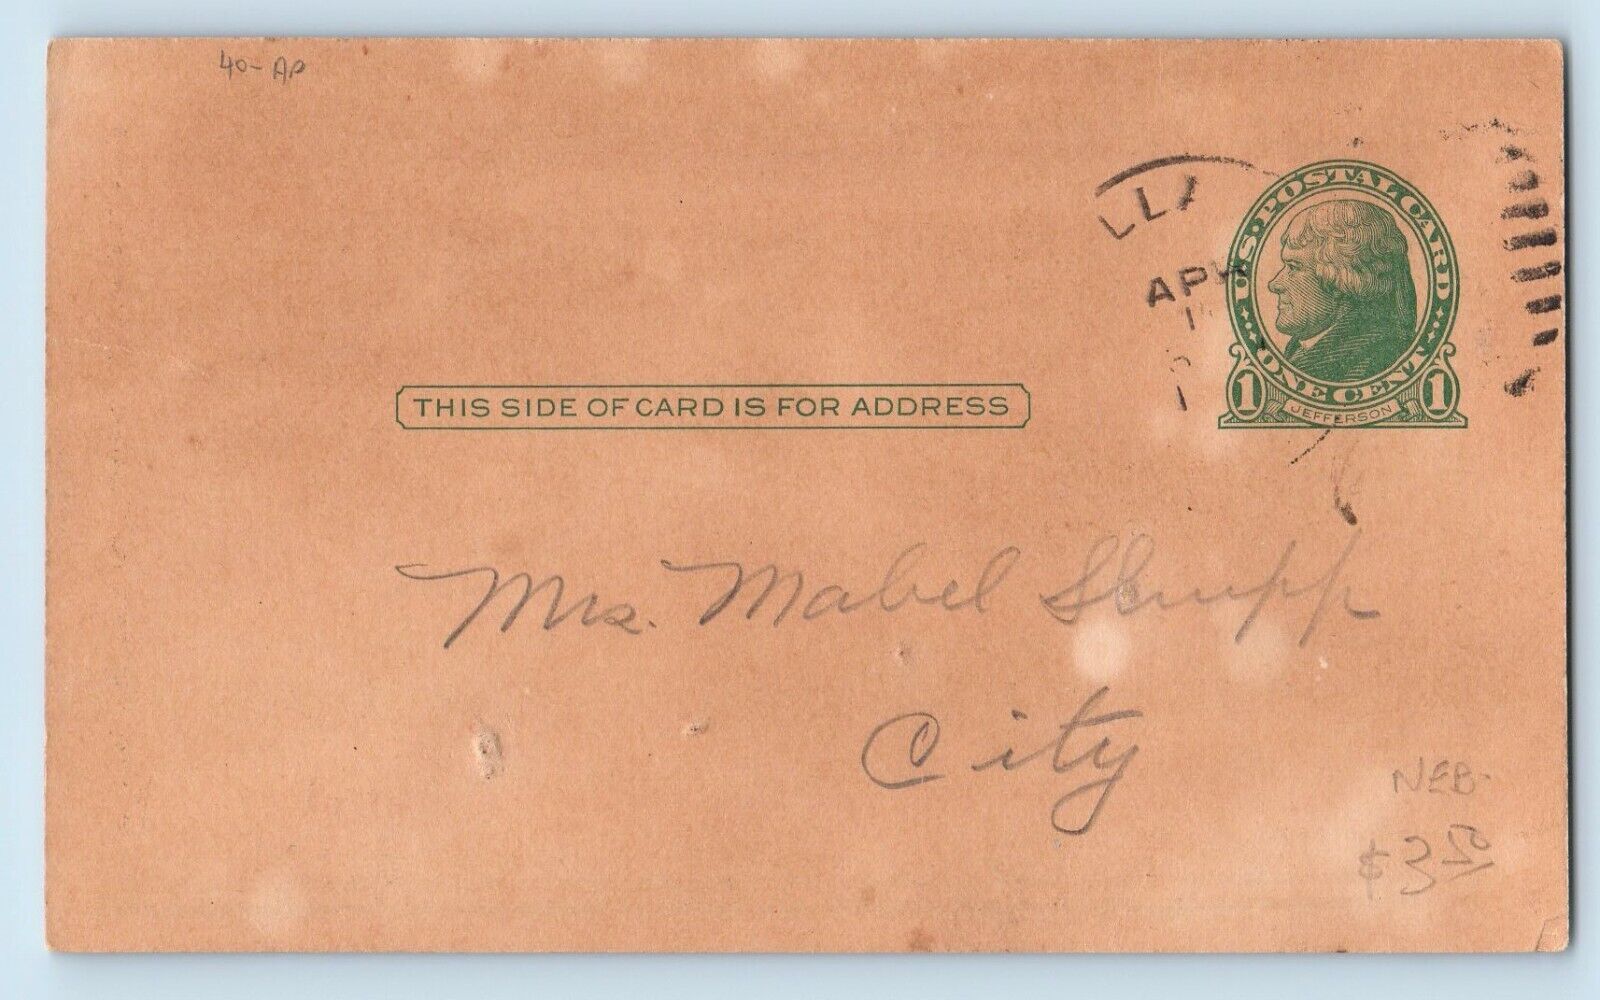 40-AP
U.S. POSTAL CARD
APR
ONE CENT
1 1
JEFFERSON
THIS SIDE OF CARD IS FOR ADDRESS
Mrs. Mabel Shupp
City
NEB.
$3.50